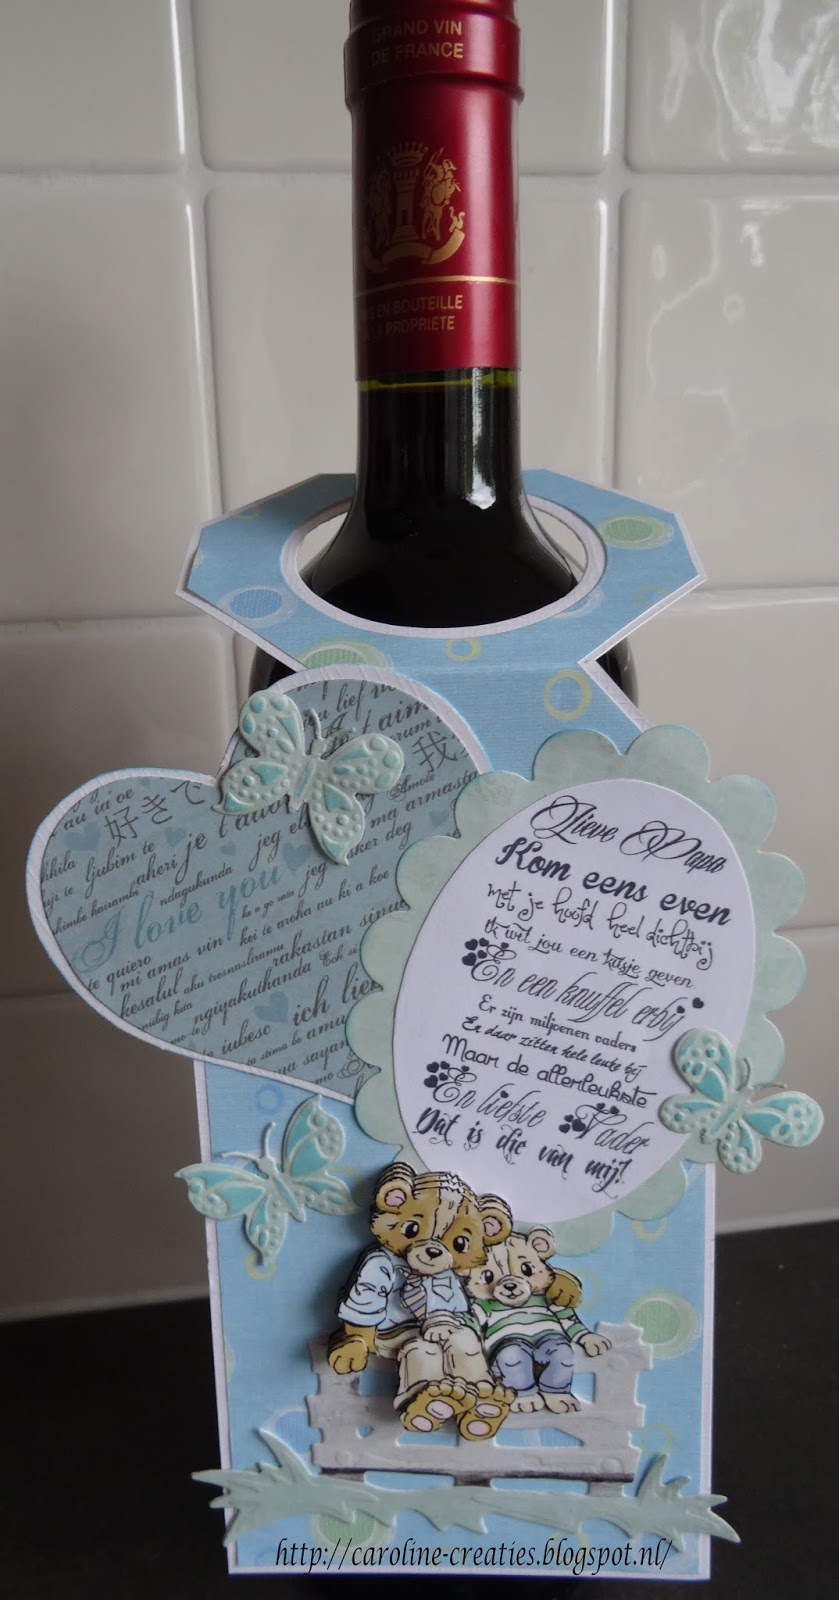 GRAND VIN
DE FRANCE
EN BOUTEILLE
A LA PROPRIETE
lief
t'aime
au ia'oe
好きで
je t'adore
我
Amote
ljubim te
aheri
jeg
ma armasta
ndagukunda
jeg
deg
himbe hairamba
I love you
ka a go rata
te quiero
mi amas vin
kei te aroha au ki a koe
kesalul
oku tresnasliramu
rakastan sinu
ngiyakuthanda
Ech
te iubesc
ich lie
amu
sayan
Lieve Papa
Kom eens even
met je hoofd heel dichtbij
Ik wil jou een kusje geven
En een knuffel erbij
Er zijn miljoenen vaders
En daar zitten hele leuke bij
Maar de allerleukste
En liefste Vader
Dat is die van mij!
http://caroline-creaties.blogspot.nl/